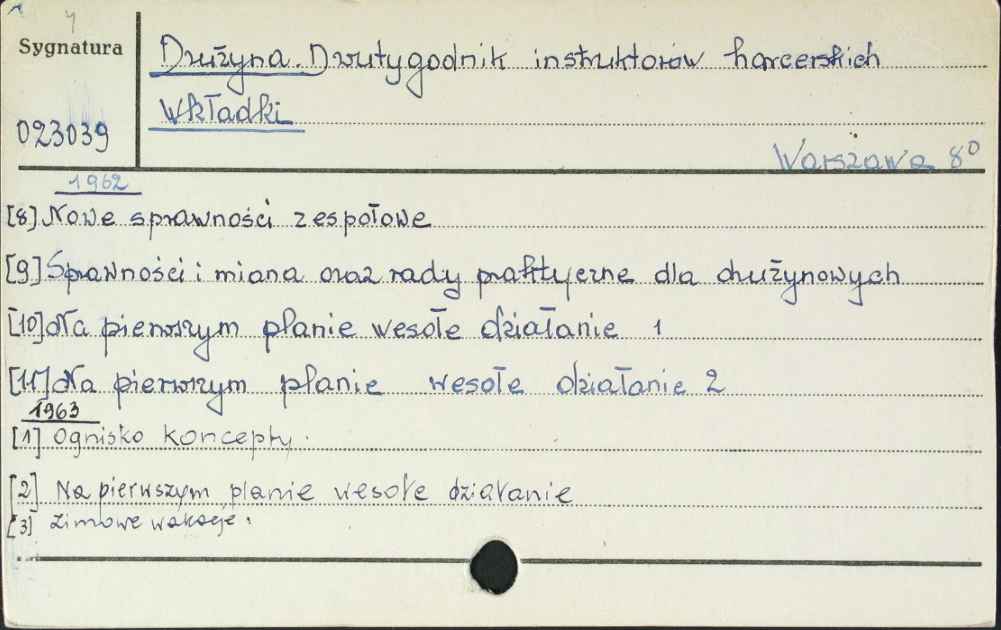 Sygnatura
Drużyna. Dwutygodnik instruktorów harcerskich
Wkładki
023039
Warszawa 8°
1962
[8] Nowe sprawności zespołowe
[9] Sprawności i miana oraz rady praktyczne dla drużynowych
[10] Na pierwszym planie wesołe działanie 1
[11] Na pierwszym planie wesołe działanie 2
1963
[1] Ognisko koncepty.
[2] Na pierwszym planie wesołe działanie
[3] Zimowe wakacje.